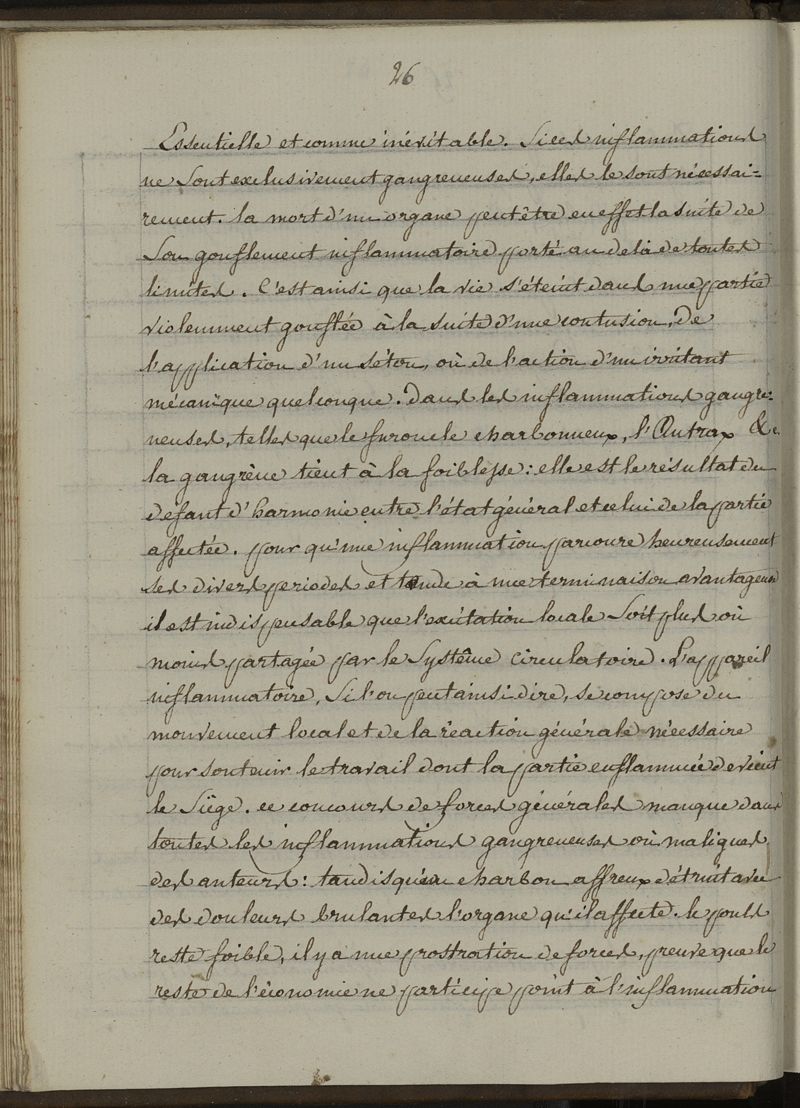 26
Essentielle et comme inévitable. Si ces inflammations
ne sont exclusivement gangreneuses, elles le sont nécessai=
rement. la mort d'un organe peut être en effet la suite de
Son gonflement inflammatoire porté au delà de toutes
limites. C'est ainsi que la vie s'éteint dans une partie
violemment gonflée à la suite d'une contusion, De
l'application d'un séton, où de l'action d'un irritant
mécanique quelconque. Dans les inflammations gangre=
neuses, telles que le furoncle charbonneux, l'Antrax &c.
la gangrène tient à la foiblesse: elle est le résultat du
defaut d'harmonie entre l'état général et celui de la partie
affectée. pour qu'une inflammation parcoure heureusement
ses divers periodes et tende à une terminaison avantageuse
il est indispensable que l'excitation locale Soit plus où
moins partagée par le Systême circulatoire. L'appareil
inflammatoire, Si l'on peut ainsi dire, se compose du
mouvement local et de la réaction générale nécessaire
pour soutenir le travail dont la partie enflammée devient
le Siège. ce concours de forces générales manque dans
toutes les inflammations gangreneuses où malignes
des auteurs: tandis qu'un charbon affreux détruit avec
des douleurs brulantes l'organe qu'il affecte. le pouls
reste foible, il y a une prostration de forces, preuve que le
reste de l'économie ne participe point à l'inflammation